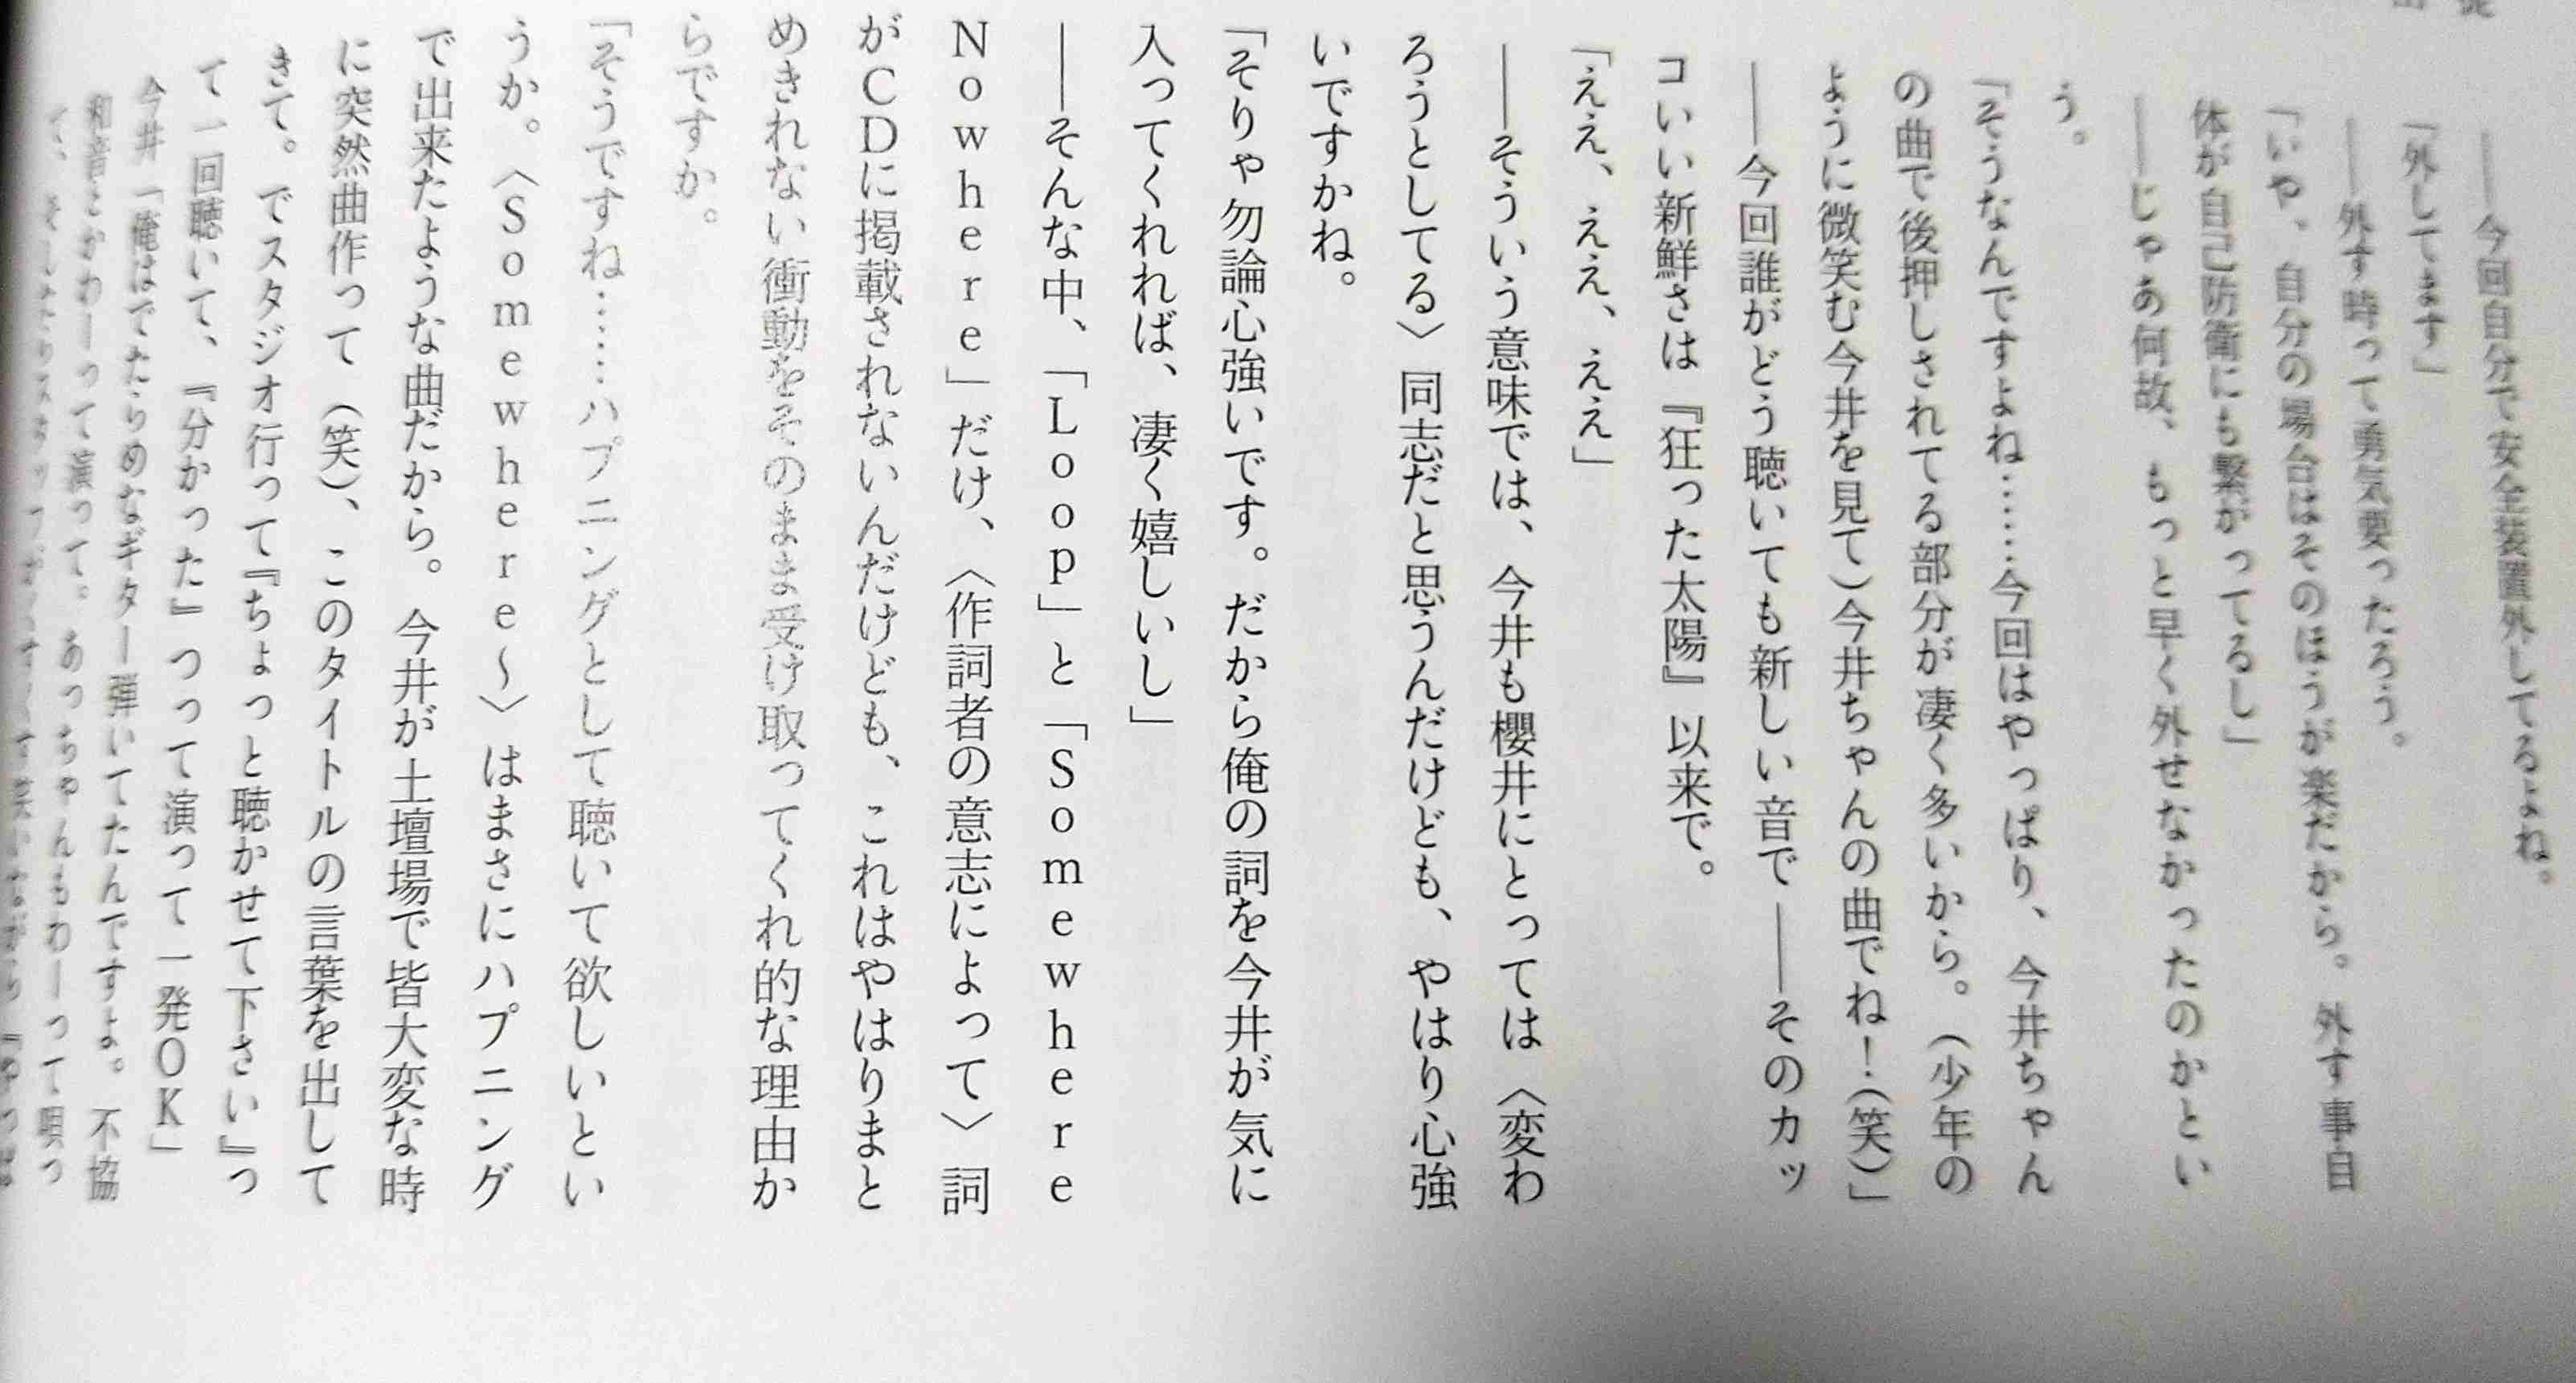 ――今回自分で安全装置外してるよね。
「外してます」
――外す時って勇気要ったろう。
「いや、自分の場合はそのほうが楽だから。外す事自
体が自己防衛にも繋がってるし」
――じゃあ何故、もっと早く外せなかったのかとい
う。
「そうなんですよね……今回はやっぱり、今井ちゃん
の曲で後押しされてる部分が凄く多いから。(少年の
ように微笑む今井を見て)今井ちゃんの曲でね!(笑)」
――今回誰がどう聴いても新しい音で――そのカッ
コいい新鮮さは『狂った太陽』以来で。
「ええ、ええ、ええ」
――そういう意味では、今井も櫻井にとっては〈変わ
ろうとしてる〉同志だと思うんだけども、やはり心強
いですかね。
「そりゃ勿論心強いです。だから俺の詞を今井が気に
入ってくれれば、凄く嬉しいし」
――そんな中、「Loop」と「Somewhere
Nowhere」だけ、〈作詞者の意志によって〉詞
がCDに掲載されないんだけども、これはやはりまと
めきれない衝動をそのまま受け取ってくれ的な理由か
らですか。
「そうですね……ハプニングとして聴いて欲しいとい
うか。〈Somewhere～〉はまさにハプニング
で出来たような曲だから。今井が土壇場で皆大変な時
に突然曲作って(笑)、このタイトルの言葉を出して
きて。でスタジオ行って『ちょっと聴かせて下さい』っ
て一回聴いて、『分かった』つって演って一発OK」
今井「俺はでたらめなギター弾いてたんですよ。不協
和音とかわーって演って。あっちゃんもわーって唄っ
て、そしたら